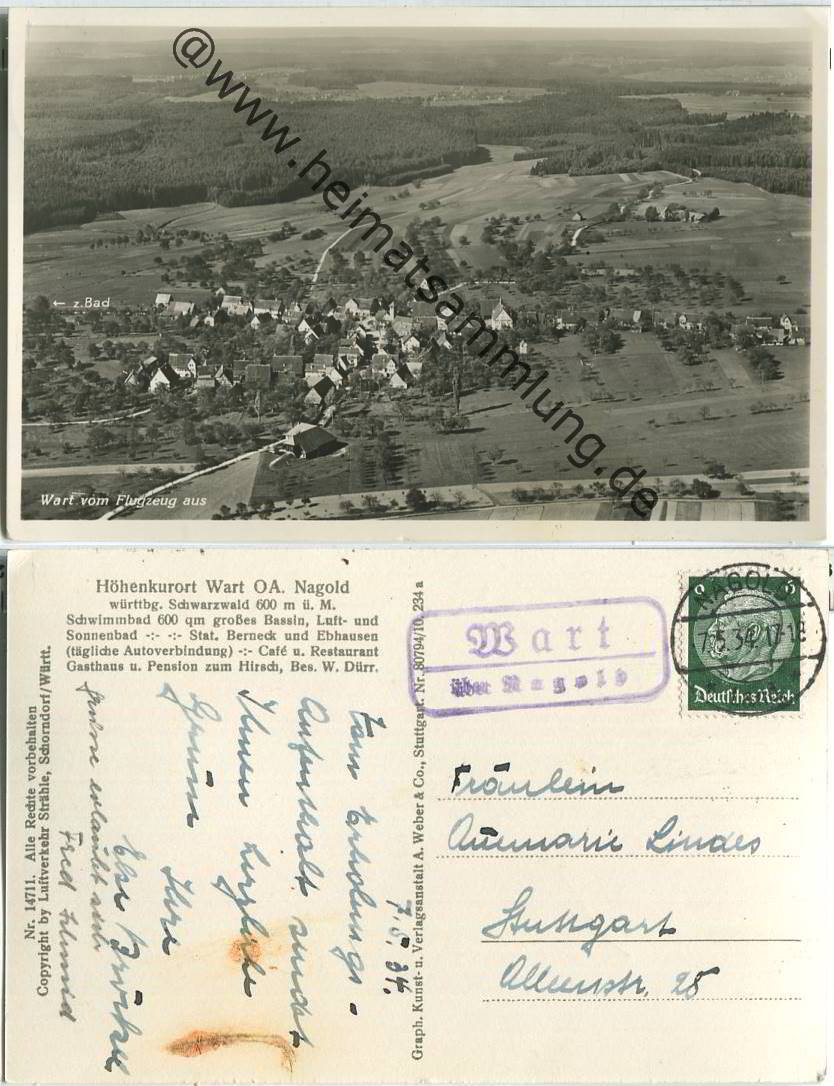 @www.heimatsammlung.de
← z.Bad
Wart vom Flugzeug aus
Höhenkurort Wart OA. Nagold
württbg. Schwarzwald 600 m ü. M.
Schwimmbad 600 qm großes Bassin, Luft- und
Sonnenbad -:- -:- Stat. Berneck und Ebhausen
(tägliche Autoverbindung) -:- Café u. Restaurant
Gasthaus u. Pension zum Hirsch, Bes. W. Dürr.
Nr. 14711. Alle Rechte vorbehalten
Copyright by Luftverkehr Strähle, Schorndorf/Württ.
7.5.34.
Vom Erholungs-
Aufenthalt sendet
Ihnen herzliche
Grüsse Ihre
Else
Grüsse erlaubt sich
Fred Schmid
Graph. Kunst- u. Verlagsanstalt A. Weber & Co., Stuttgart. Nr. 80794/10. 234 a
Wart
über Nagold
NAGOLD
7.5.34.17-18
6 6
Deutsches Reich
Fräulein
Annemarie Lindes
Stuttgart